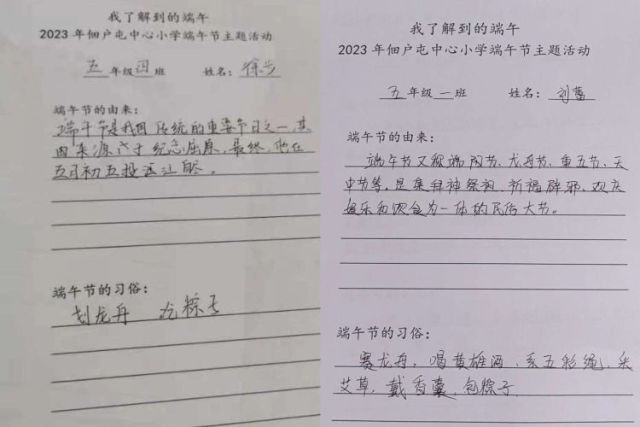 我了解到的端午
2023年佃户屯中心小学端午节主题活动
五年级四班 姓名：徐步
端午节的由来：
端午节是我国传统的重要节日之一,其
由来源于纪念屈原,最终,他在
五月初五投江
端午节的习俗：
划龙舟 吃粽子
我了解到的端午
2023年佃户屯中心小学端午节主题活动
五年级一班 姓名：刘蕾
端午节的由来：
端午节又称端阳节、龙舟节、重五节、天
中节等,是集拜神祭祖、祈福辟邪、欢庆
娱乐和饮食为一体的民俗大节。
端午节的习俗：
赛龙舟,喝黄雄酒,系五彩绳,采
艾草,戴香囊,包粽子.